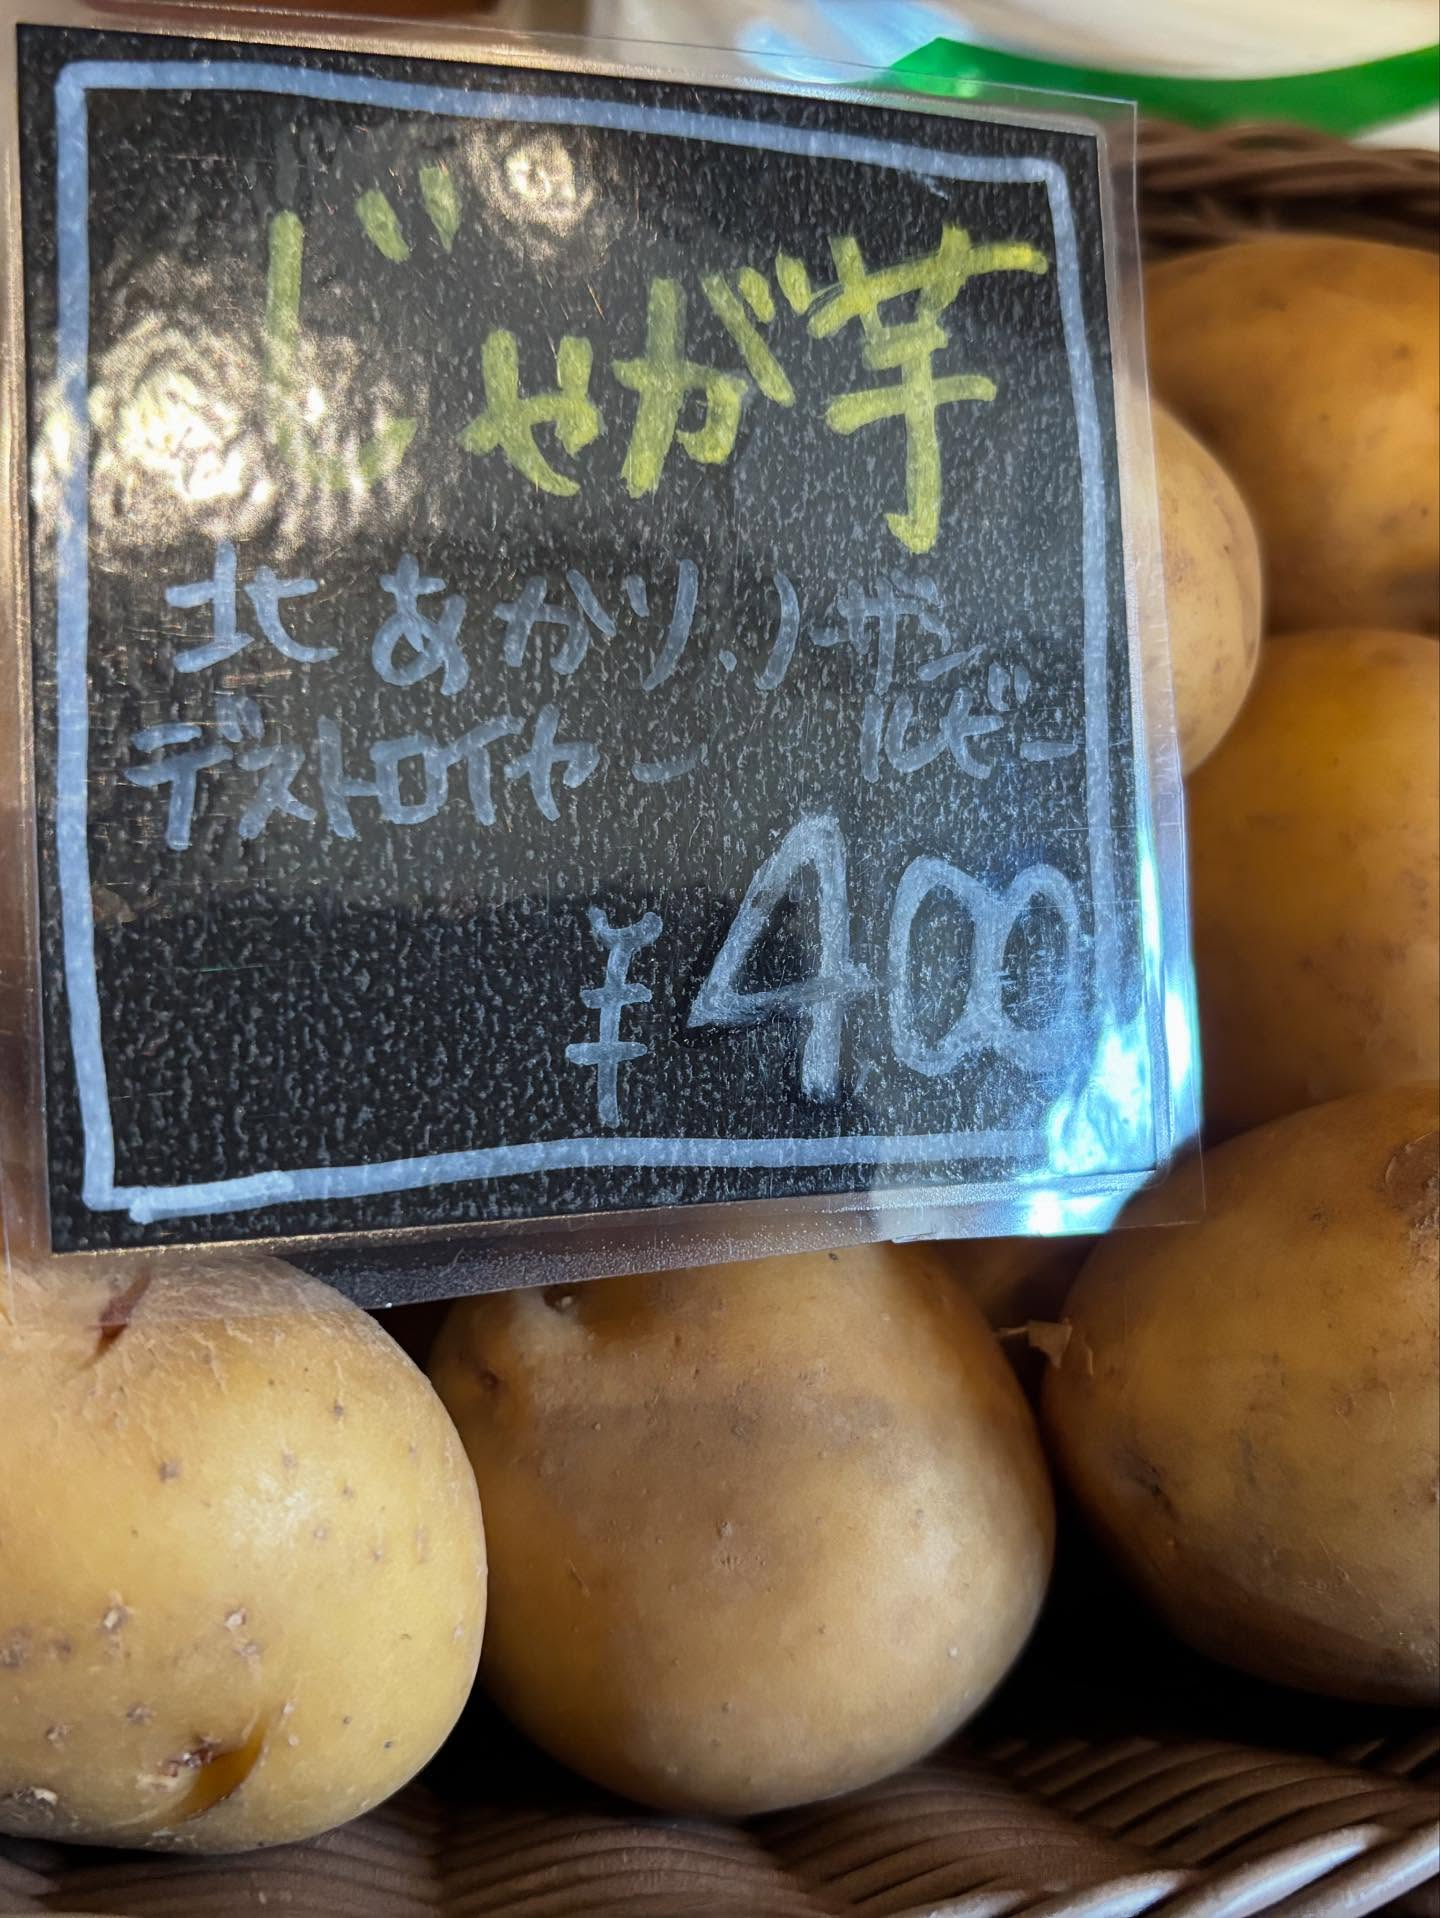 じゃが芋
北あかり、ノーザンルビー
デストロイヤー
¥400